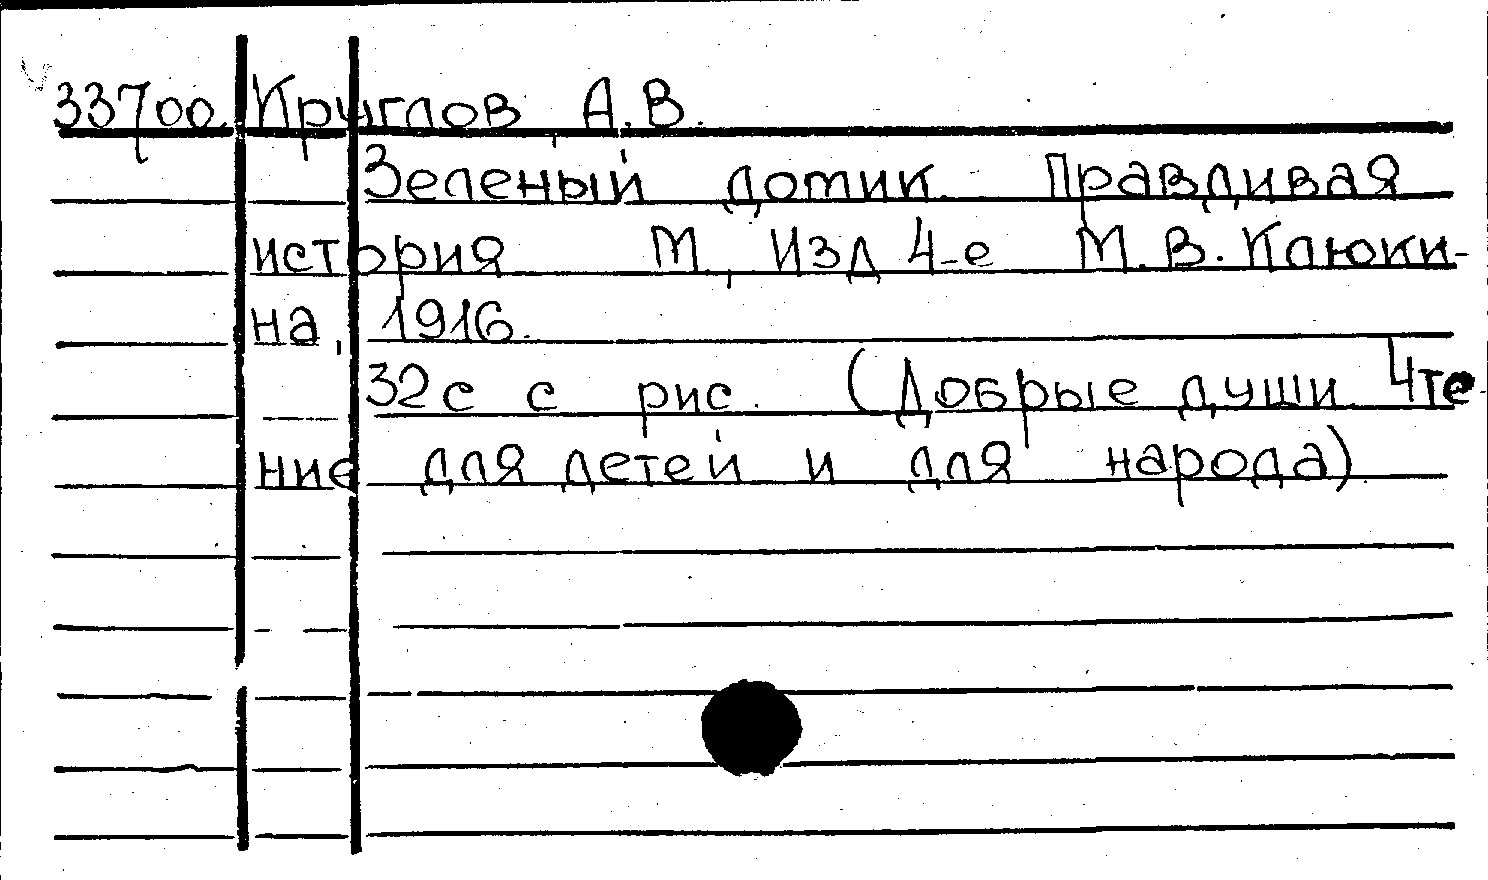 33700 Круглов, А.В.
Зеленый домик. Правдивая
история М., Изд 4-е М.В. Клюки-
на, 1916.
32с с рис. (Добрые души. Чте
ние для детей и для народа)